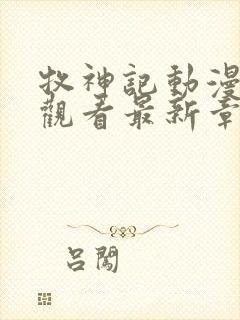 牧神記動漫
觀看最新章
呂闖